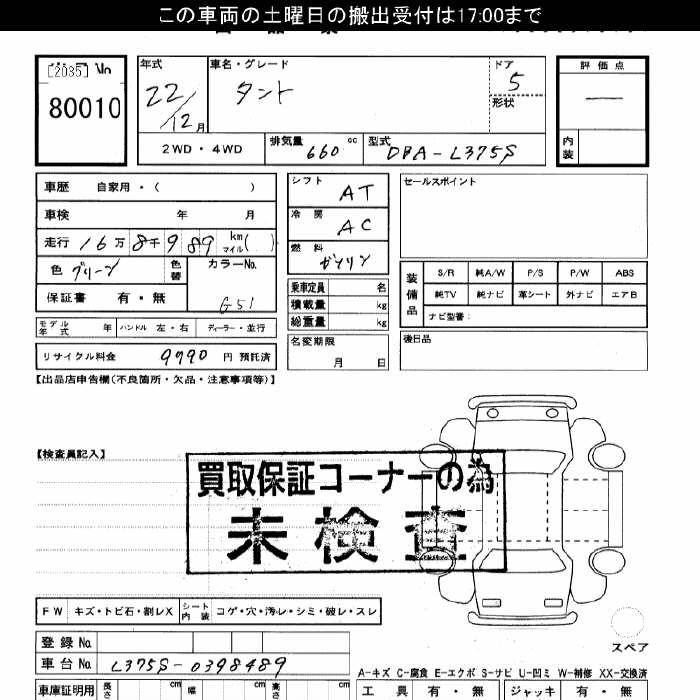 この車両の土曜日の搬出受付は17:00まで
[2035] No
80010
年式 22/12月
車名・グレード タント
ドア 5
形状
評価点 —
内装
2WD・4WD
排気量 660 cc
型式 DBA-L375S
車歴 自家用・( )
車検 年 月
走行 16万8千989 km マイル( )
色 グリーン 色替
カラーNo. G51
保証書 有・無
モデル年式 年 ハンドル 左・右 ディーラー・並行
リサイクル料金 9790 円 預託済
シフト AT
冷房 AC
燃料 ガソリン
乗車定員 名
積載量 kg
総重量 kg
名変期限 月 日
セールスポイント
装備品 S/R 純A/W P/S P/W ABS
純TV 純ナビ 革シート 外ナビ エアB
ナビ型番:
後日品
【出品店申告欄(不良箇所・欠品・注意事項等)】
【検査員記入】
買取保証コーナーの為
未検査
FW キズ・トビ石・割レX シート内装 コゲ・穴・汚レ・シミ・破レ・スレ
スペア
登録No.
車台No. L375S-0398489
A-キズ C-腐食 E-エクボ S-サビ U-凹ミ W-補修 XX-交換済
車庫証明用 長さ cm 幅 cm 高さ cm
工具 有・無 ジャッキ 有・無